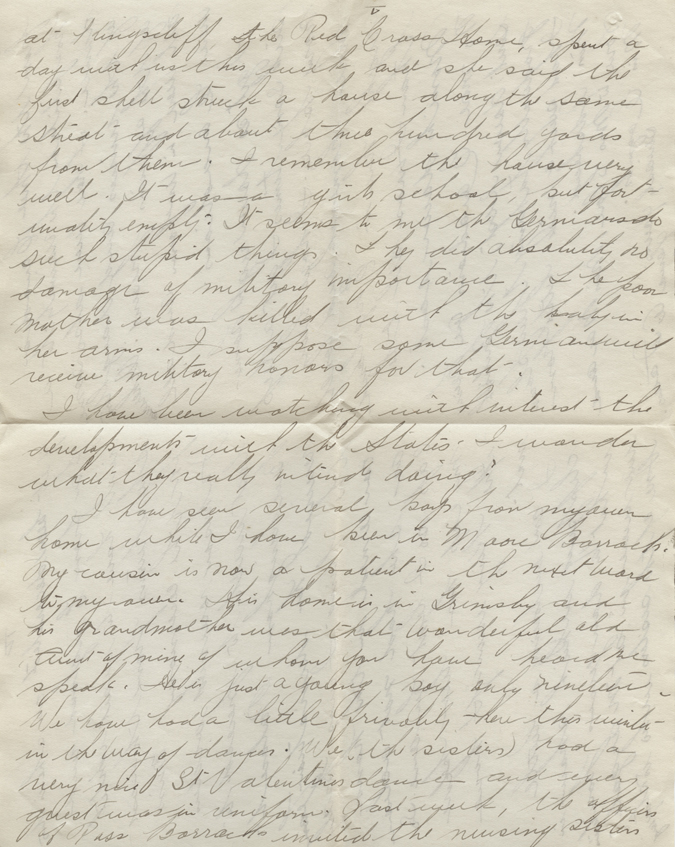 V
at Kingscliff the Red Cross Home, spent a
day with us this week and she said the
first shell struck a house along the same
street and about three hundred yards
from them. I remember the house very
well. It was a girls school, but fort-
unately empty. It seems to me the Germans do
such stupid things. They did absolutely no
damage of military importance. The poor
mother was killed with the baby in
her arms. I suppose some German will
receive military honors for that.
I have been watching with interest the
developments with the States. I wonder
what they really intend doing?
I have seen several boys from my own
home while I have been in Moore Barracks.
My cousin is now a patient in the next ward
to my own. His home is in Grimsby and
his grandmother was that wonderful old
Aunt of mine of whom you have heard me
speak. He is just a young boy only nineteen.
We have had a little frivolity here this winter
in the way of dances. We (the sisters) had a
very nice St Valentines dance and every
guest was in uniform. Last week, the officers
of Ross Barracks invited the nursing sisters